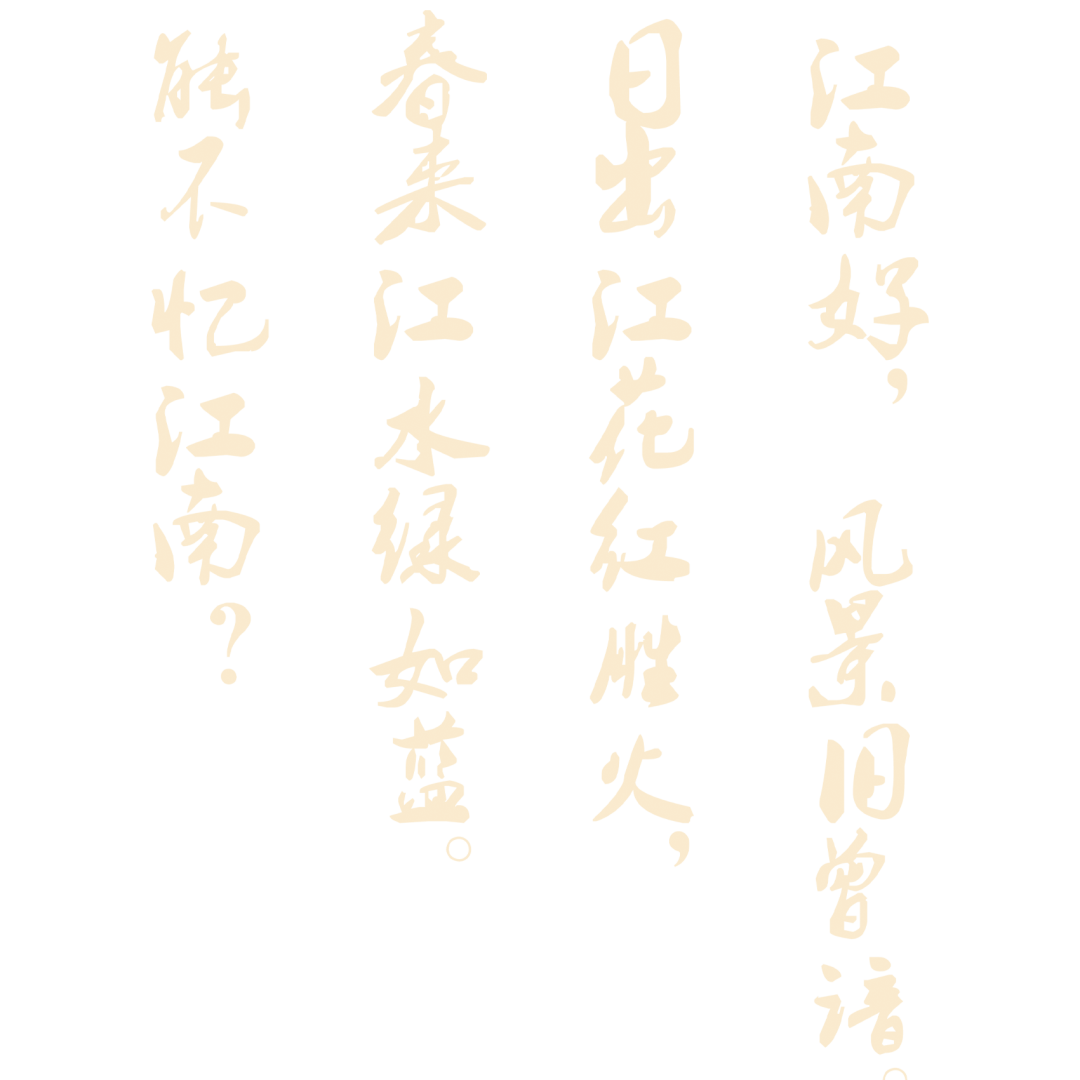 江南好，风景旧曾谙。
日出江花红胜火，
春来江水绿如蓝。
能不忆江南？